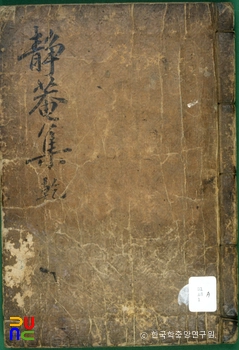 靜菴集 乾
ⓒ 한국학중앙연구원